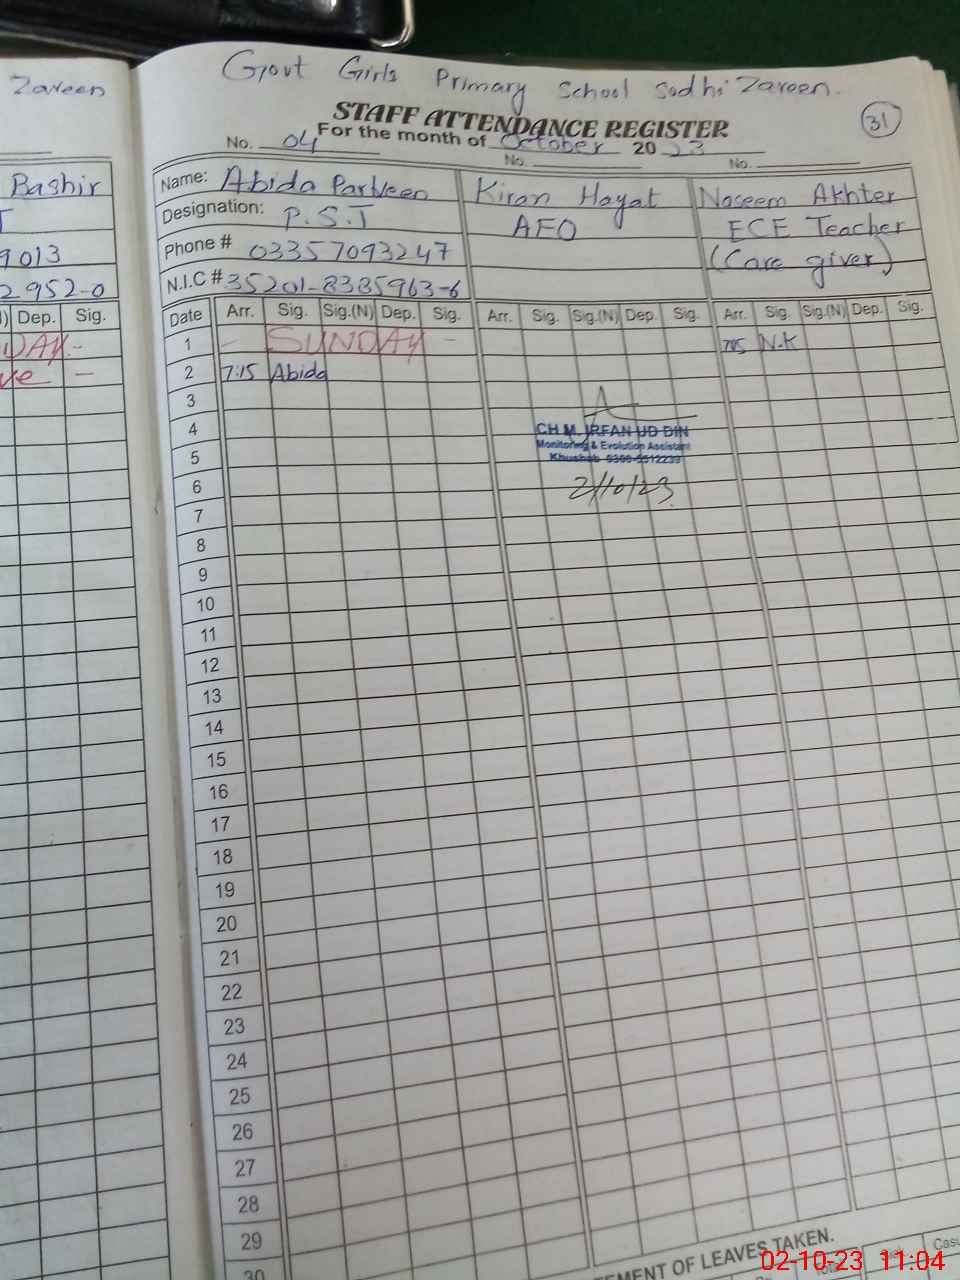 Zareen
Govt Girls Primary School Sodhi Zareen.
STAFF ATTENDANCE REGISTER
31
For the month of October 2023
No. 04 No. No.
Bashir
9013
2952-0
Dep. Sig.
Name: Abida Parveen Kiran Hayat Naseem Akhter
Designation: P.S.T AEO ECE Teacher
Phone # 03357093247 (Care giver)
N.I.C # 35201-8385963-6
Date Arr. Sig. Sig.(N) Dep. Sig. Arr. Sig. Sig.(N) Dep. Sig. Arr. Sig. Sig.(N) Dep. Sig.
1 - SUNDAY - N.K
2 7:15 Abida
3
4
CH M. IRFAN UD DIN
Monitoring & Evolution Assistant
5
Khushab
6
2/10/23
7
8
9
10
11
12
13
14
15
16
17
18
19
20
21
22
23
24
25
26
27
28
29
30
EMENT OF LEAVES TAKEN.
02-10-23 11:04